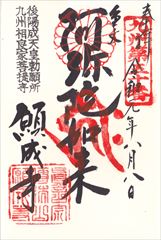 奉拝
令和元年八月八日
阿弥陀如来
願成寺
後陽成天皇勅願所
九州相良家菩提寺